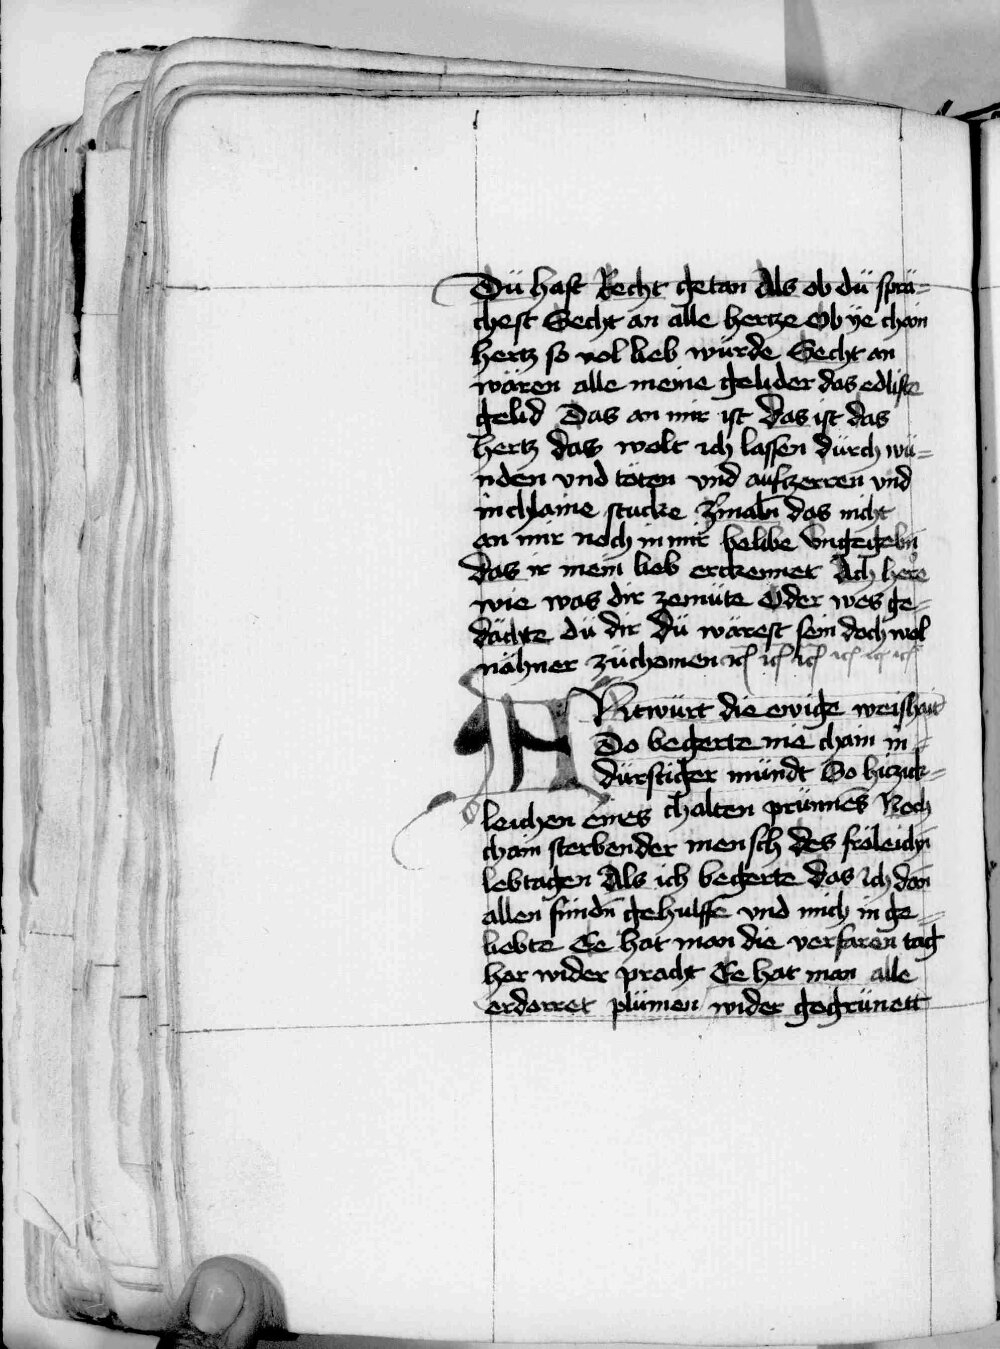 Dü hast Recht getan Als ob dü sprä=
chest Secht an alle hertze Ob ÿe chain
hertz so vol lieb würde Secht an
wären alle meine gelider das edliste
gelid Das an mir ist Das ist das
hertz das wolt ich lassen dürch wü=
nden vnd töten vnd aufzerren vnd
in chlaine stucke zermaln das nicht
an mir noch in mir belibe vngegebn
das ir mein lieb erckennet Ach herre
wie was dir zemüte Oder wes ge=
dächte dü dir Dü wärest sein doch wol
nähner züchomen ich ich ich ich ich ich
ANtwürt die ewige weishait
Do begerte nie chain in=
dürstiger mündt So hiczick=
leichen eines chalten prünnes Noch
chain sterbender mensch des fröleichn
lebtagen Als ich begerte das ich den
allen sündn gehulffe vnd mich in ge=
liebte Ee hat man die verfaren tag
her wider pracht Ee hat man alle
erdorret plümen wider gegrünett